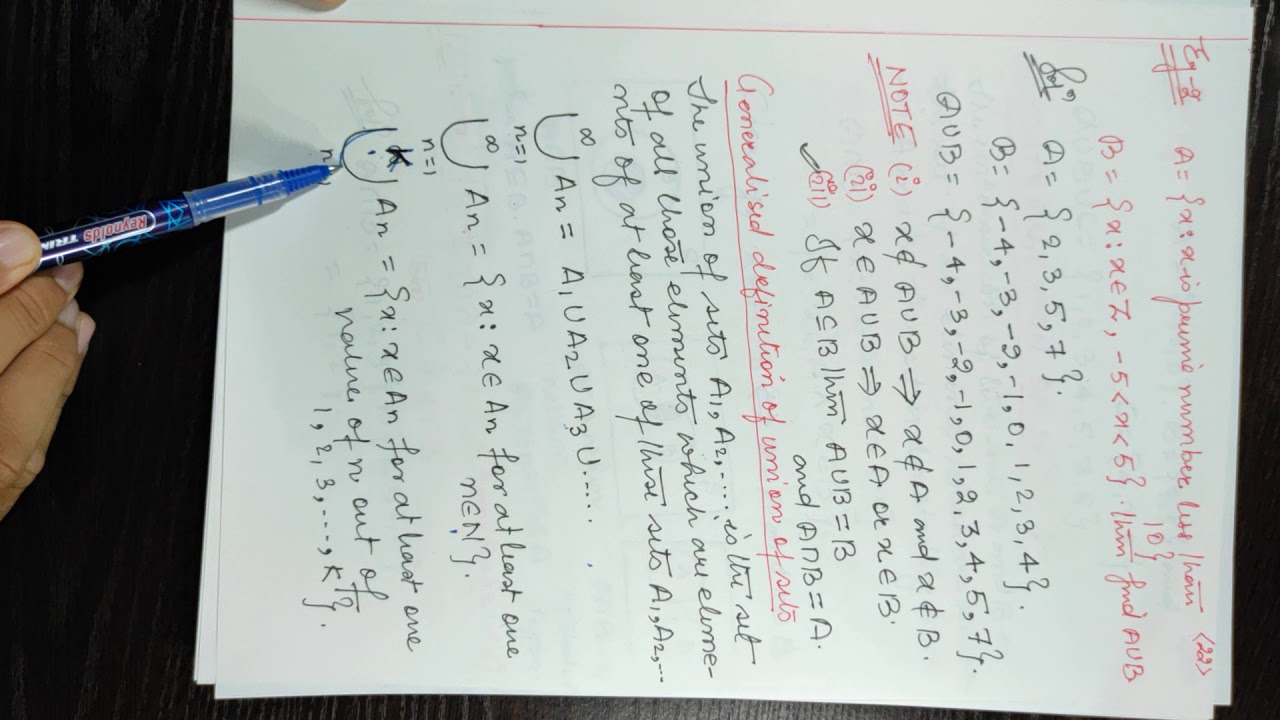 (22)
Eg-2 A = {x : x is prime number less than 10}
B = {x : x ∈ Z, -5 < x < 5}. then find A∪B
Solⁿ, A = {2, 3, 5, 7}.
B = {-4, -3, -2, -1, 0, 1, 2, 3, 4}.
A∪B = {-4, -3, -2, -1, 0, 1, 2, 3, 4, 5, 7}.
NOTE (i) x ∉ A∪B ⇒ x ∉ A and x ∉ B.
(ii) x ∈ A∪B ⇒ x ∈ A or x ∈ B.
(iii) If A ⊆ B then A∪B = B
and A∩B = A.
Generalised definition of union of sets
The union of sets A₁, A₂, .... is the set
of all those elements which are eleme-
nts of at least one of these sets A₁, A₂, ...
∞
⋃ An = A₁ ∪ A₂ ∪ A₃ ∪ .....
n=1
∞
⋃ An = {x : x ∈ An for at least one
n=1
n ∈ N}.
k
⋃ An = {x : x ∈ An for at least one
n
value of n out of
1, 2, 3, ...., k}.
Reynolds
TRIM